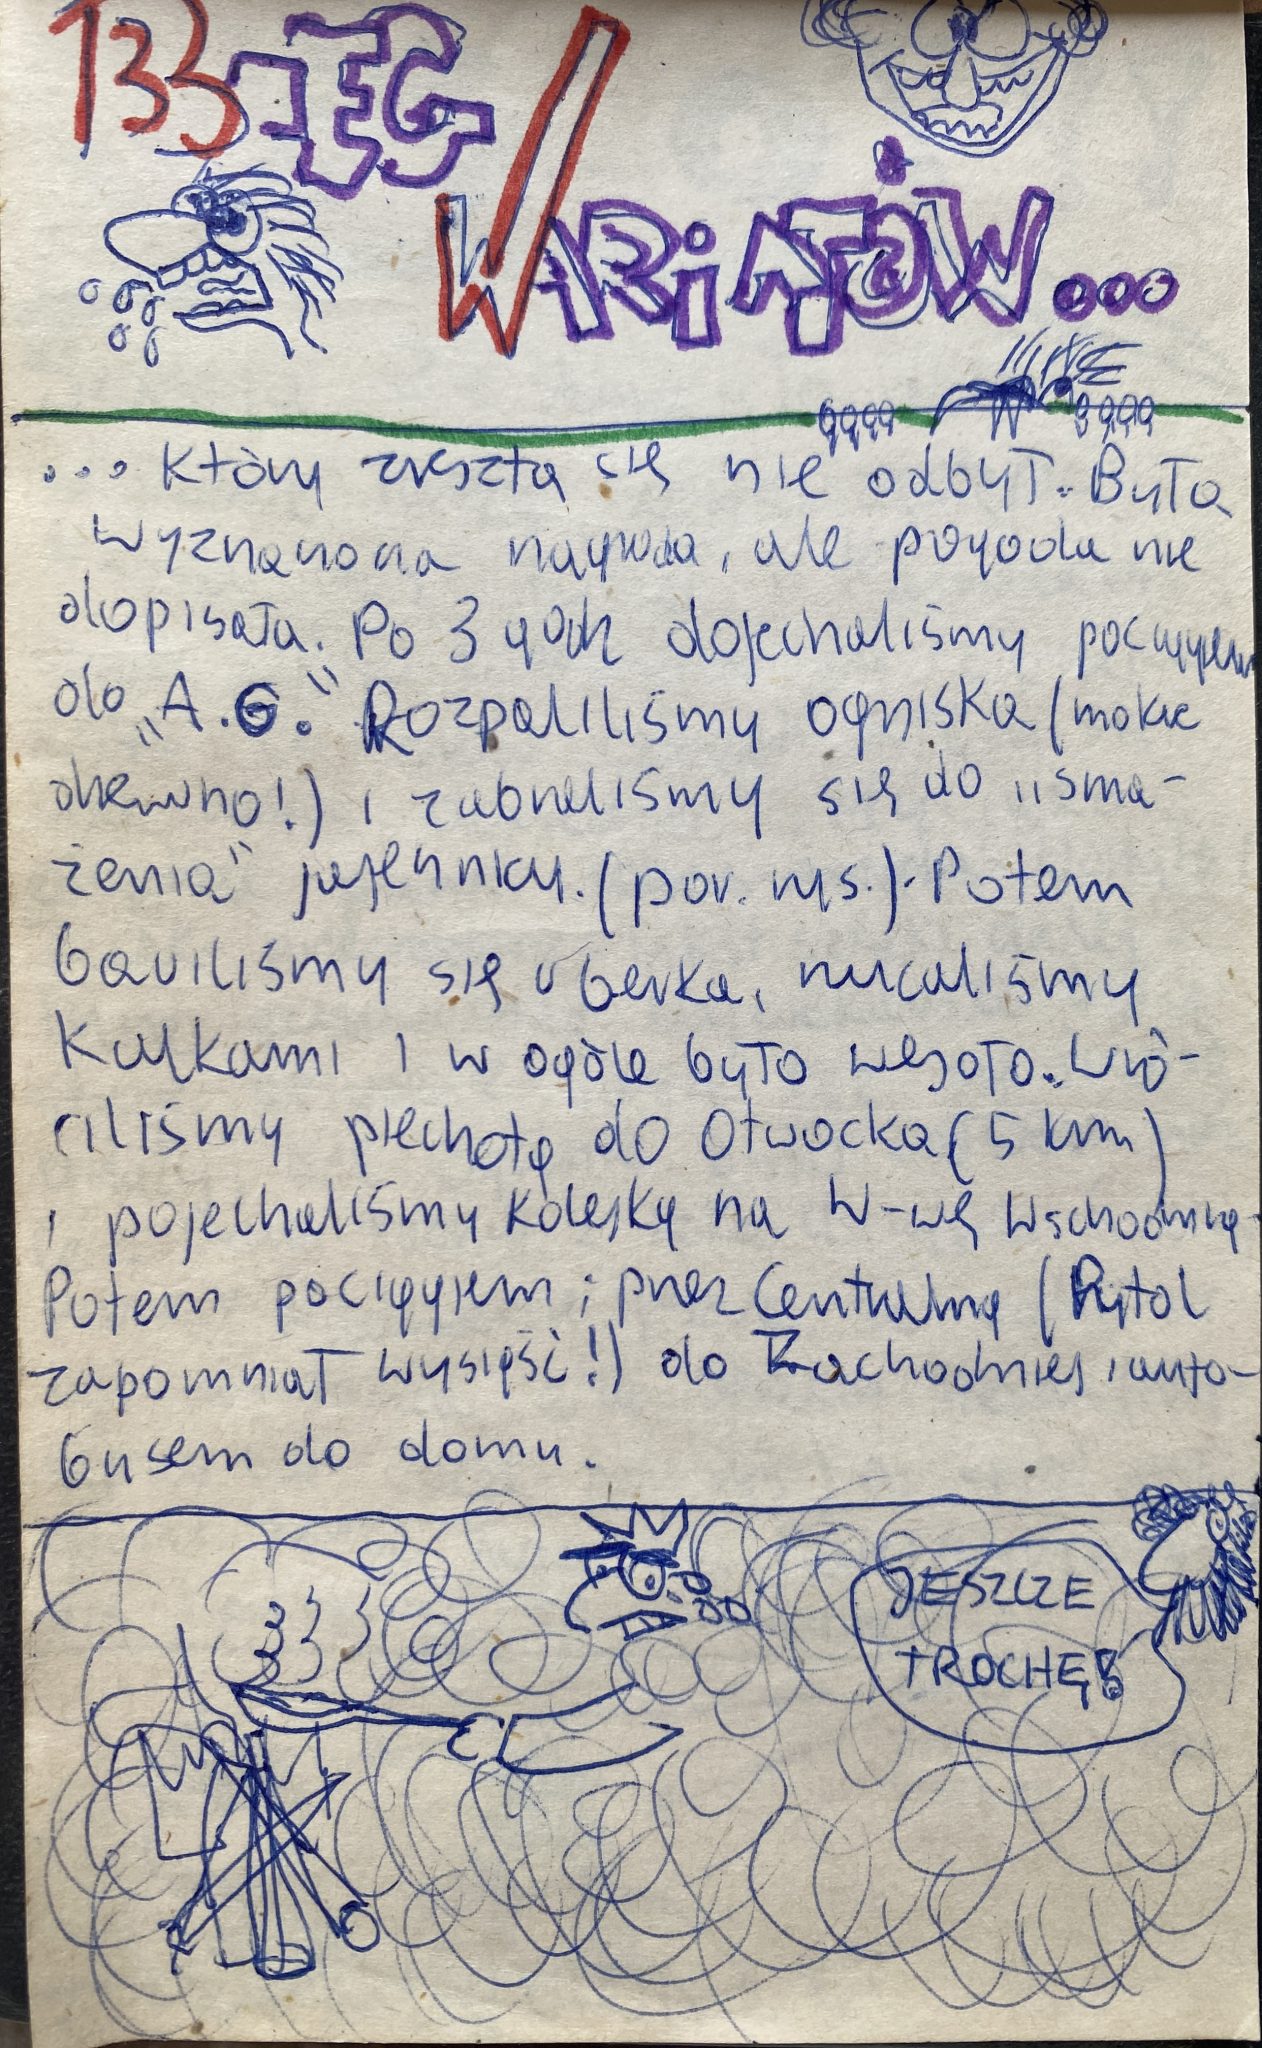 133-EG
WARiATÓW...
... Który zresztą się nie odbył. Była
wyznaczona nagroda, ale pogoda nie
dopisała. Po 3 godz dojechaliśmy pociągiem
do „A.G." Rozpaliliśmy ogniska (mokre
drewno!) i zabraliśmy się do „sma-
żenia" jajecznicy. (por. rys.). Potem
bawiliśmy się w berka, rzucaliśmy
Kulkami i w ogóle było wesoło. Wró-
ciliśmy piechotą do Otwocka (5 km)
i pojechaliśmy kolejką na W-wę Wschodnią.
Potem pociągiem; przez Centralną (
zapomniał wysiąść!) do Zachodniej i auto-
busem do domu.
JESZCZE
TROCHĘ!